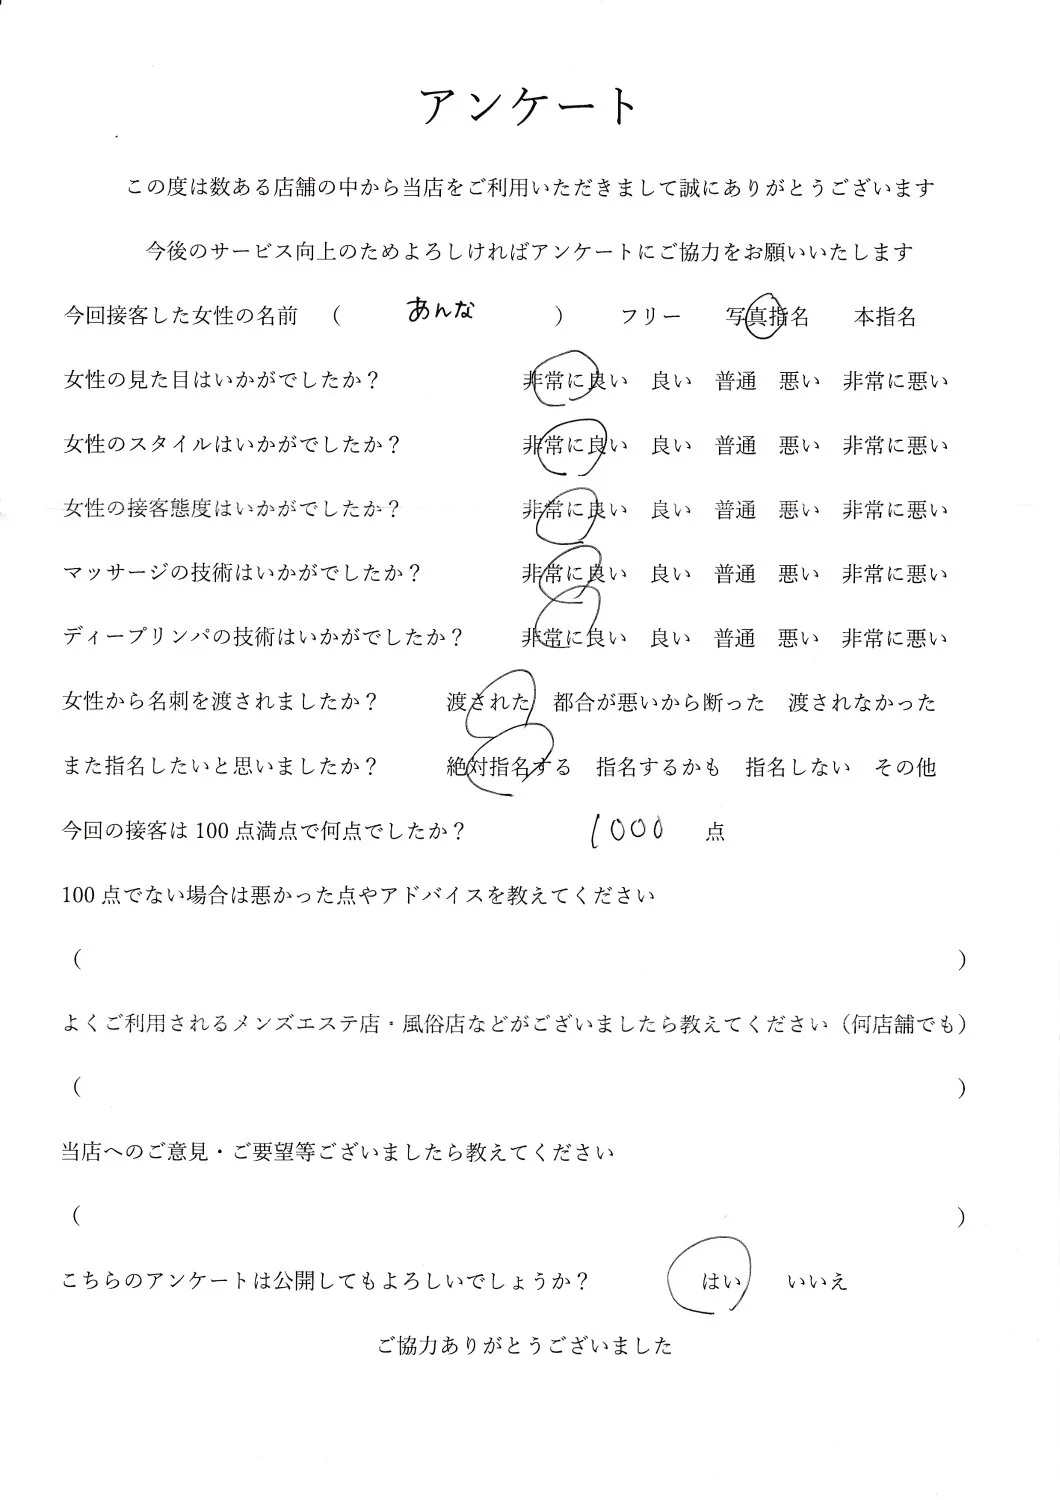 アンケート
この度は数ある店舗の中から当店をご利用いただきまして誠にありがとうございます
今後のサービス向上のためよろしければアンケートにご協力をお願いいたします
今回接客した女性の名前 ( あんな ) フリー 写真指名 本指名
女性の見た目はいかがでしたか？ 非常に良い 良い 普通 悪い 非常に悪い
女性のスタイルはいかがでしたか？ 非常に良い 良い 普通 悪い 非常に悪い
女性の接客態度はいかがでしたか？ 非常に良い 良い 普通 悪い 非常に悪い
マッサージの技術はいかがでしたか？ 非常に良い 良い 普通 悪い 非常に悪い
ディープリンパの技術はいかがでしたか？ 非常に良い 良い 普通 悪い 非常に悪い
女性から名刺を渡されましたか？ 渡された 都合が悪いから断った 渡されなかった
また指名したいと思いましたか？ 絶対指名する 指名するかも 指名しない その他
今回の接客は 100 点満点で何点でしたか？ 1000 点
100 点でない場合は悪かった点やアドバイスを教えてください
( )
よくご利用されるメンズエステ店・風俗店などがございましたら教えてください（何店舗でも）
( )
当店へのご意見・ご要望等ございましたら教えてください
( )
こちらのアンケートは公開してもよろしいでしょうか？ はい いいえ
ご協力ありがとうございました